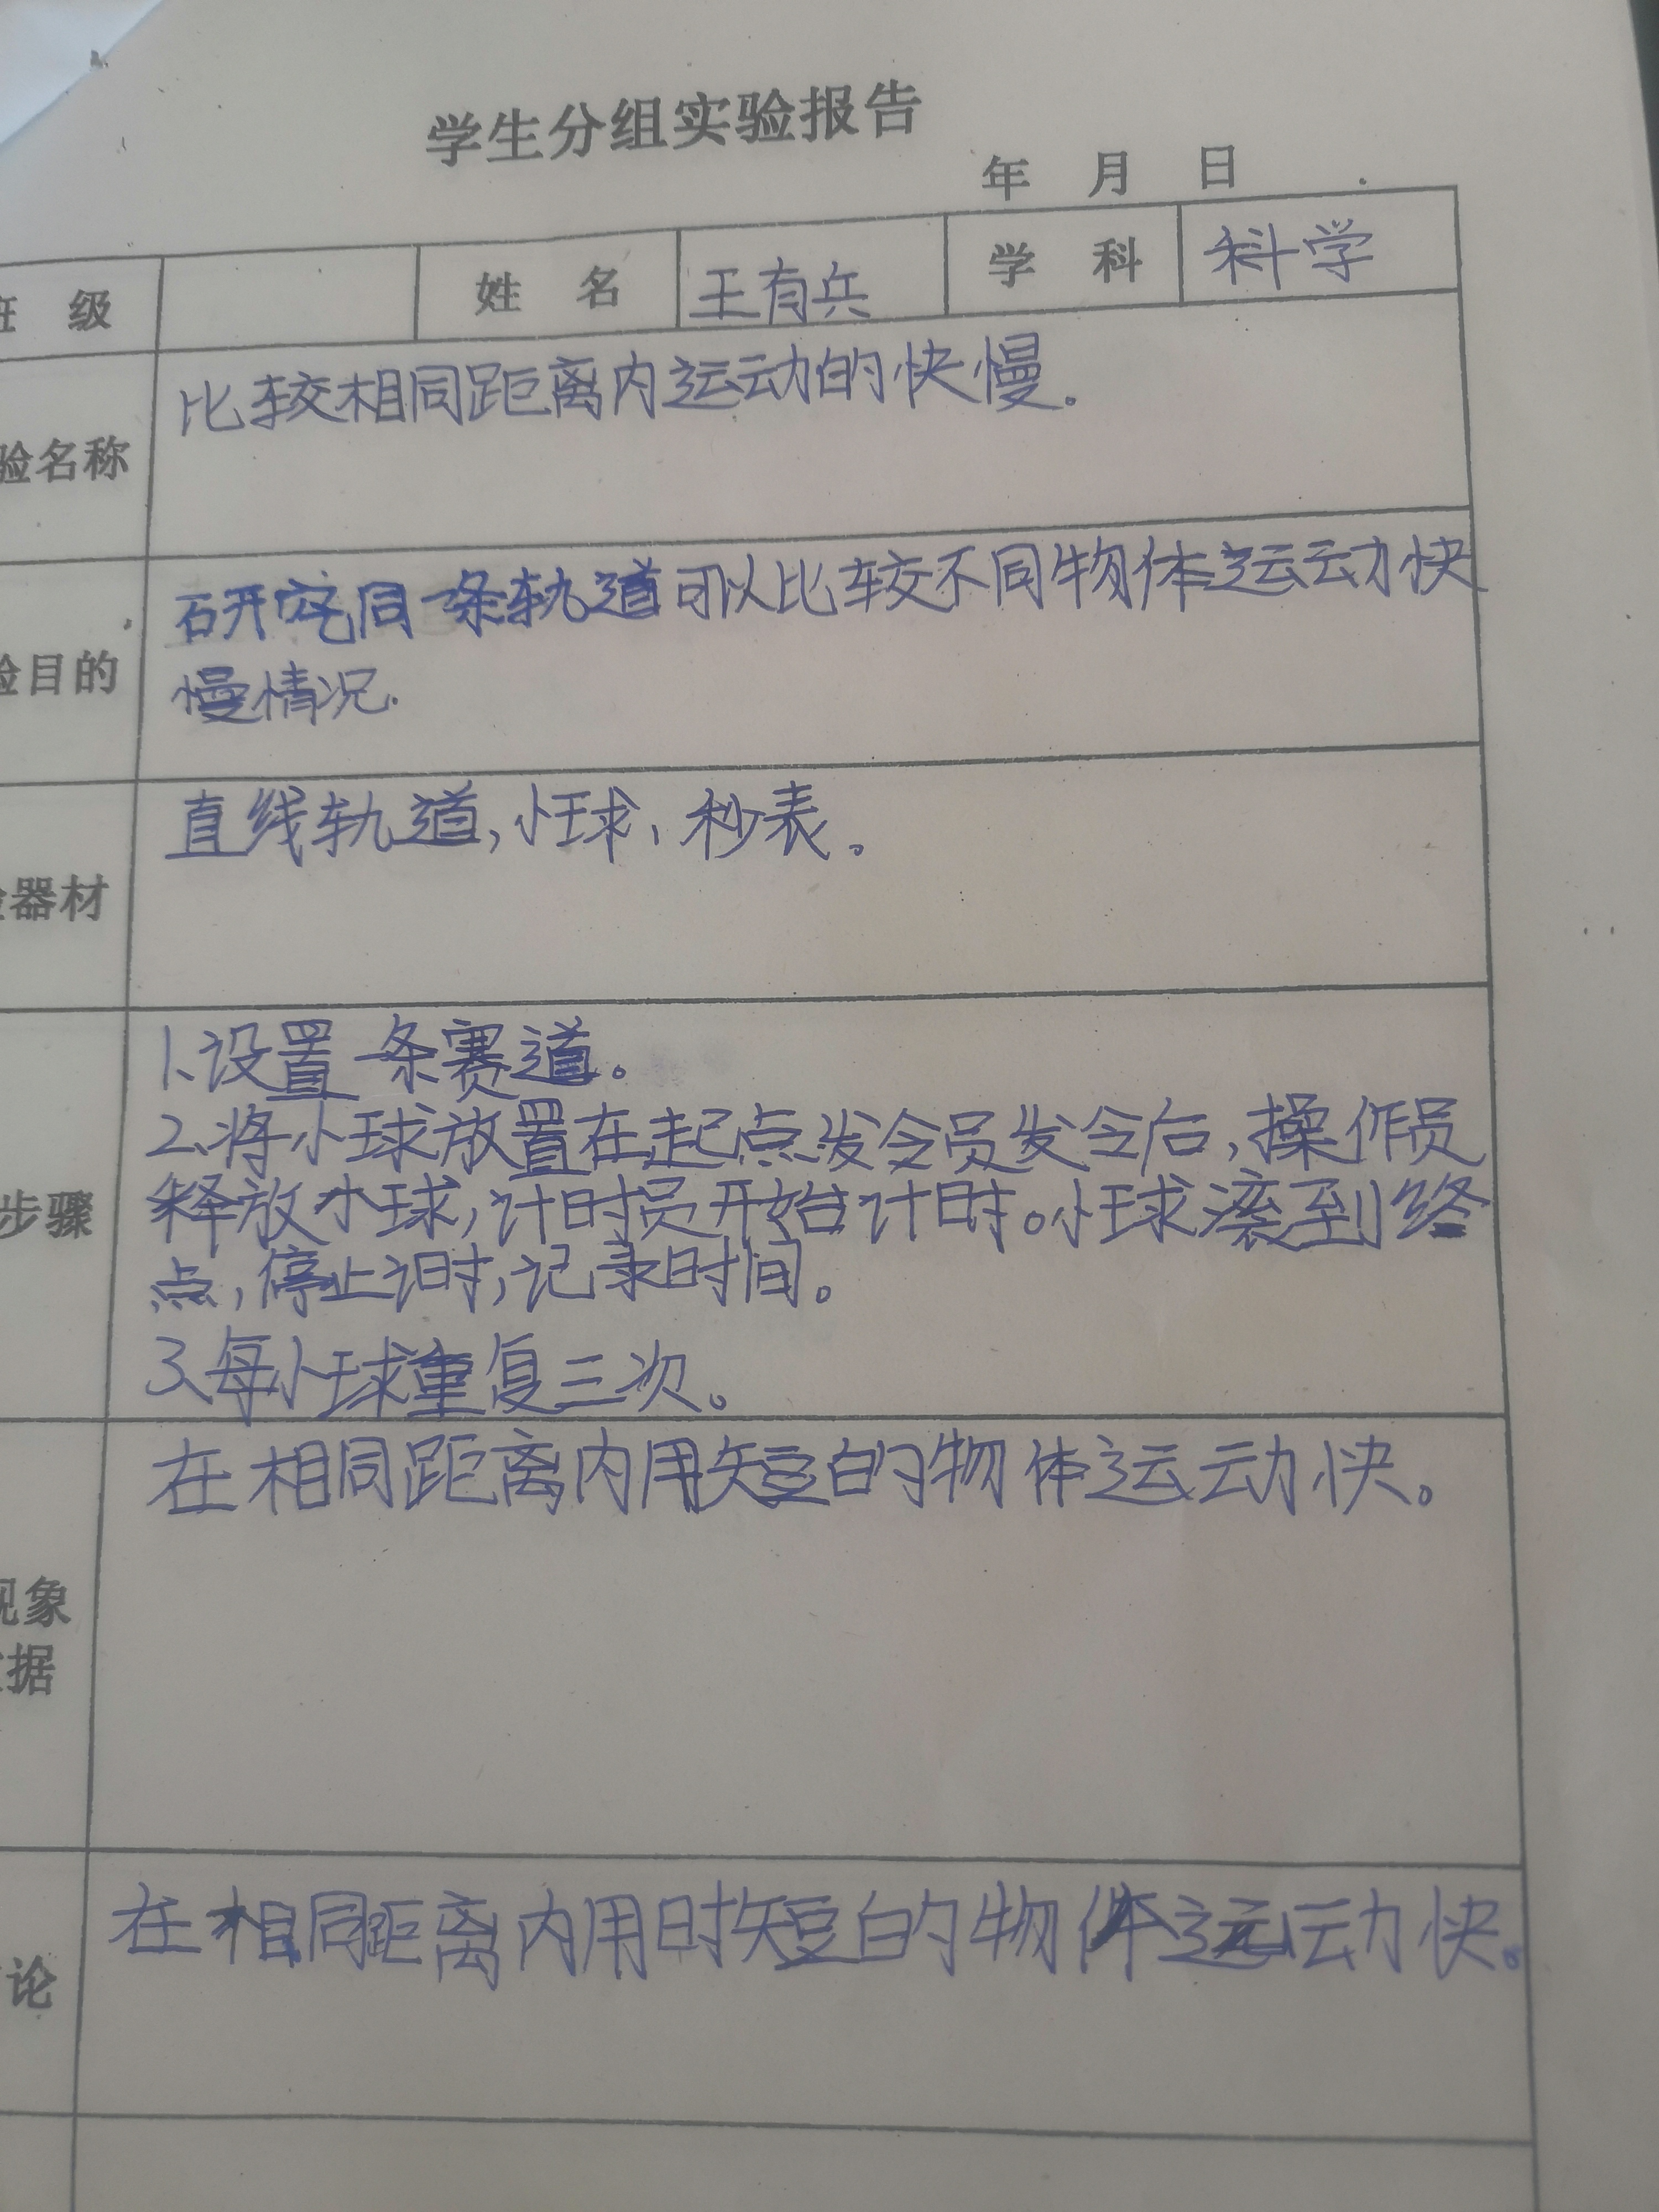 学生分组实验报告
年 月 日
班 级 姓 名 王有兵 学 科 科学
验名称 比较相同距离内运动的快慢。
验目的 研究同一条轨道可以比较不同物体运动快
慢情况.
器材 直线轨道,小球、秒表。
步骤 1、设置一条赛道。
2、将小球放置在起点发令员发令后,操作员
释放小球,计时员开始计时。小球滚到终
点,停止计时,记录时间。
3、每小球重复三次。
现象 在相同距离内用短的物体运动快。
据
论 在相同距离内用时短的物体运动快。